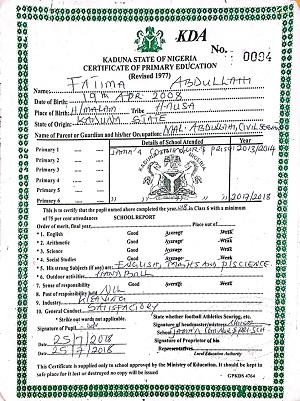 KDA
No. 0004
KADUNA STATE OF NIGERIA
CERTIFICATE OF PRIMARY EDUCATION
(Revised 1977)
Name: FATIMA ABDULLAHI
Date of Birth: 19th APR 2008
Place of Birth: H/MALAM Tribe HAUSA
State of Origin: KADUNA STATE
Name of Parent or Guardian and his/her Occupation: MAL. ABDULLAHI, CIVIL
Details of School Attended Year
Primary 1 2013/2014
Primary 2
Primary 3
Primary 4
Primary 5
Primary 6 " " 2017/2018
This is to certify that the pupil named above completed the year in Class 6 with a minimum
of 75 per cent attendances SCHOOL REPORT
Order of merit, final year Place out of
*1. English Good Average Weak
*2. Arithmetic Good Average Weak
*3. Science Good Average Weak
*4. Social Studies Good Average Weak
*5. His strong Subject (if any) are: ENGLISH, MATHS AND SCIENCE
6. Outdoor activities HAND BALL
7. Sense of responsibility Good Average Weak
8. Post of responsibility held NIL
9. Industry WEAVING
10. General Conduct SATISFACTORY
*Strike out words not applicable. State whether football Athletics Soaring, etc.
Signature of Pupil Signature of headmaster/mistress
Date 25/7/2018 School
Date 25/7/2018 Signature of Proprietor of his
Representatives
Local Education Authority
This Certificate is supplied only to school approved by the Ministry of Education. It should be kept in
safe place for it lost or destroyed no copy will be issued GPKDS 4764